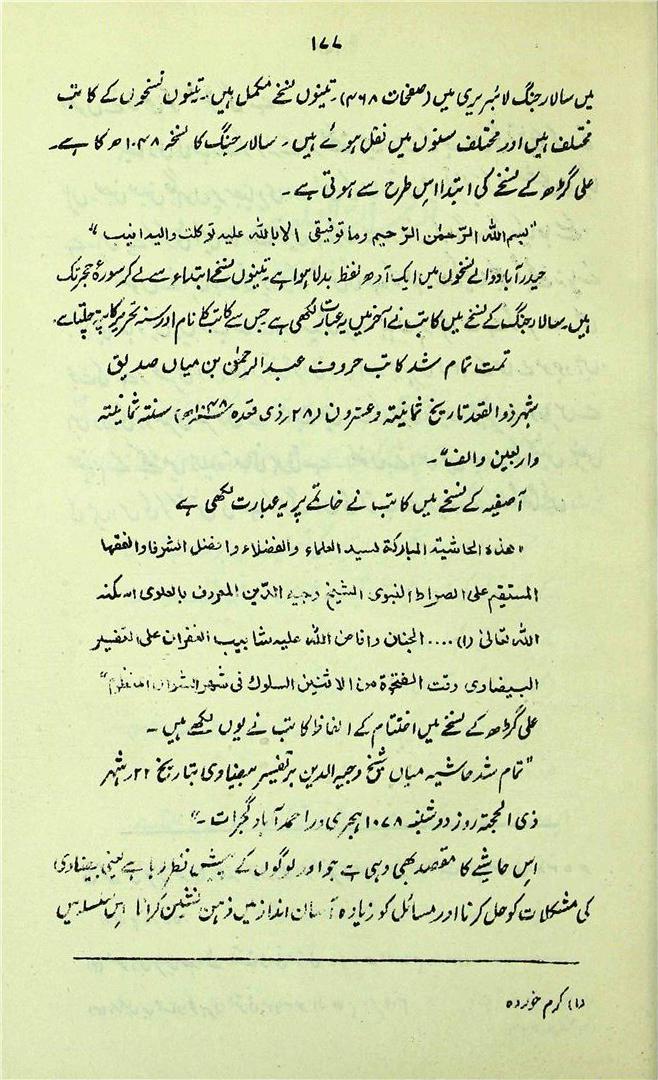 ۱۷۷
میں سالار جنگ لائبریری میں (صفحات ۴۶۸)۔ تینوں نسخے مکمل ہیں۔ تینوں نسخوں کے کاتب
مختلف ہیں اور مختلف سنوں میں نقل ہوئے ہیں۔ سالار جنگ کا نسخہ ۱۰۴۸ھ کا ہے۔
علی گڑھ کے نسخے کی ابتدا اس طرح سے ہوتی ہے۔
"بسم اللہ الرّحمٰن الرّحیم وما توفیقی الا باللہ علیہ توکلت والیہ انیب"
حیدر آباد والے نسخوں میں ایک آدھ لفظ بدلا ہوا ہے۔ تینوں نسخے ابتداء سے لے کر سورۂ حجر تک
ہیں۔ سالار جنگ کے نسخے میں کاتب نے آخر میں یہ عبارت لکھی ہے جس سے کاتب کا نام اور سنہ تحریر کا پتہ چلتا ہے۔
تمت تمام شد کاتب حروف عبد الرحمٰن بن میاں صدیق
شہر ذوالقعد تاریخ ثمانیتہ وعشرون (۲۸؍ ذی قعدہ ۱۰۴۸ھ) سنتہ ثمانیتہ
واربعین والف"۔
آصفیہ کے نسخے میں کاتب نے خاتمے پر یہ عبارت لکھی ہے
"ھذہ الحاشیۃ المبارکۃ لسید العلماء والفضلاء وافضل الشرفا والفقہا
المستقیم علی الصراط النبوی الشیخ وجیہ الدّین المعروف بالعلوی اسکنہ
اللہ تعالیٰ (۱).... الجنان وافاض اللہ علیہ شابیب الغفران علی التفسیر
البیضاوی وقت الفتحوۃ من الاثنین السلوک فی شھر الشوال
علی گڑھ کے نسخے میں اختتام کے الفاظ کاتب نے یوں لکھے ہیں۔
"تمام شد حاشیہ میاں شیخ وجیہ الدین بر تفسیر بیضاوی بتاریخ ۲۲؍ شہر
ذی الحجۃ روز دوشنبہ ۱۰۷۸ ہجری در احمد آباد گجرات۔"
اس حاشیے کا مقصد بھی وہی ہے جو اور لوگوں کے پیش نظر رہا ہے یعنی بیضاوی
کی مشکلات کو حل کرنا اور مسائل کو زیادہ آسان انداز میں ذہن نشین کرانا اس سلسلہ میں
(۱) کرم خوردہ